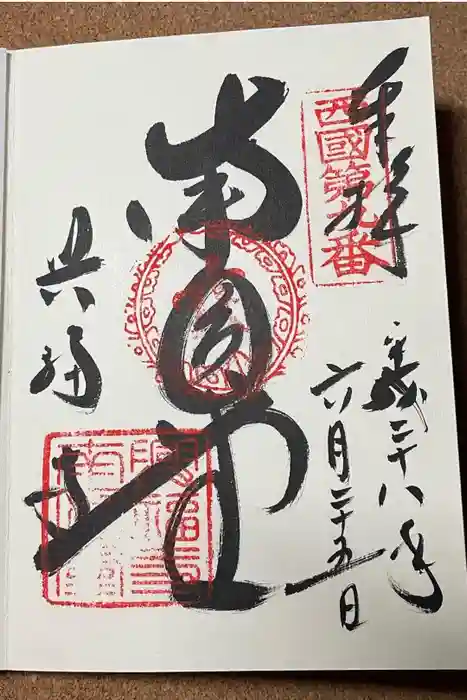 奉拝
西國第九番
平成二十八年
六月二十五日
南圓堂
興福寺